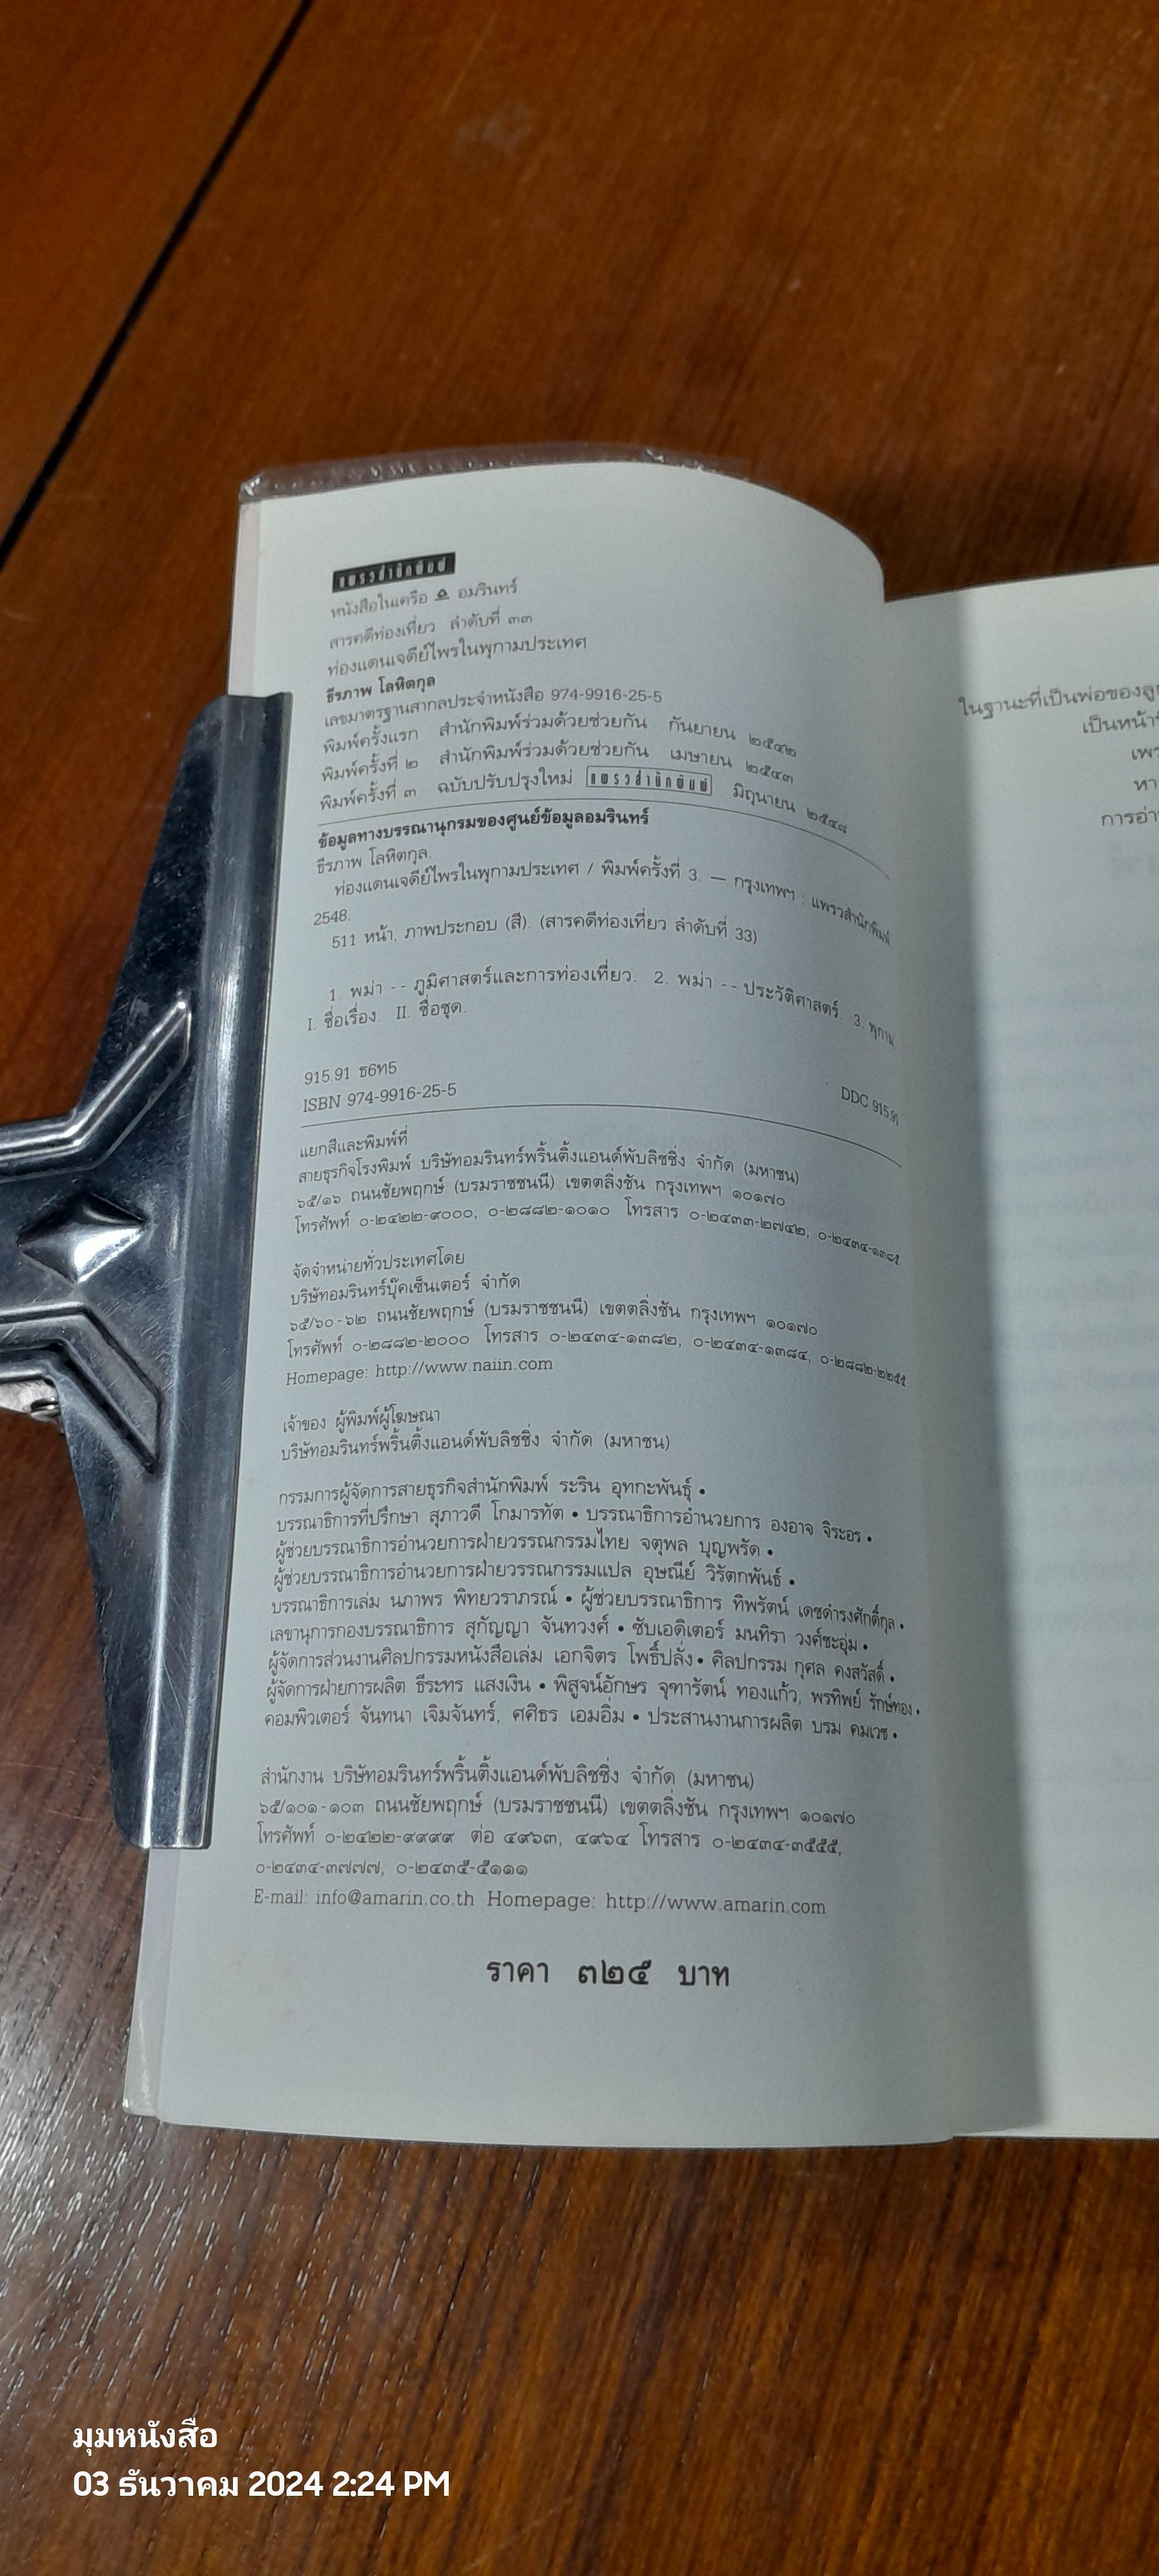 แพรวสำนักพิมพ์
หนังสือในเครือ อมรินทร์
สารคดีท่องเที่ยว ลำดับที่ ๓๓
ท่องแดนเจดีย์ไพรในพุกามประเทศ
ธีรภาพ โลหิตกุล
เลขมาตรฐานสากลประจำหนังสือ 974-9916-25-5
พิมพ์ครั้งแรก สำนักพิมพ์ร่วมด้วยช่วยกัน กันยายน ๒๕๔๒
พิมพ์ครั้งที่ ๒ สำนักพิมพ์ร่วมด้วยช่วยกัน เมษายน ๒๕๔๓
พิมพ์ครั้งที่ ๓ ฉบับปรับปรุงใหม่ แพรวสำนักพิมพ์ มิถุนายน ๒๕๔๘
ข้อมูลทางบรรณานุกรมของศูนย์ข้อมูลอมรินทร์
ธีรภาพ โลหิตกุล.
ท่องแดนเจดีย์ไพรในพุกามประเทศ / พิมพ์ครั้งที่ 3. — กรุงเทพฯ : แพรวสำนักพิมพ์
2548.
511 หน้า, ภาพประกอบ (สี). (สารคดีท่องเที่ยว ลำดับที่ 33)
1. พม่า - - ภูมิศาสตร์และการท่องเที่ยว. 2. พม่า - - ประวัติศาสตร์. 3. พุกาม
I. ชื่อเรื่อง. II. ชื่อชุด.
915.91 ธ6ท5
ISBN 974-9916-25-5 DDC 915.91
แยกสีและพิมพ์ที่
สายธุรกิจโรงพิมพ์ บริษัทอมรินทร์พริ้นติ้งแอนด์พับลิชชิ่ง จำกัด (มหาชน)
๖๕/๑๖ ถนนชัยพฤกษ์ (บรมราชชนนี) เขตตลิ่งชัน กรุงเทพฯ ๑๐๑๗๐
โทรศัพท์ ๐-๒๔๒๒-๙๐๐๐, ๐-๒๘๘๒-๑๐๑๐ โทรสาร ๐-๒๔๓๓-๒๗๔๒, ๐-๒๔๓๔-๑๓๘๕
จัดจำหน่ายทั่วประเทศโดย
บริษัทอมรินทร์บุ๊คเซ็นเตอร์ จำกัด
๖๕/๖๐-๖๒ ถนนชัยพฤกษ์ (บรมราชชนนี) เขตตลิ่งชัน กรุงเทพฯ ๑๐๑๗๐
โทรศัพท์ ๐-๒๘๘๒-๒๐๐๐ โทรสาร ๐-๒๔๓๔-๑๓๘๒, ๐-๒๔๓๔-๑๓๘๔, ๐-๒๘๘๒-๒๒๕๕
Homepage: http://www.naiin.com
เจ้าของ ผู้พิมพ์ผู้โฆษณา
บริษัทอมรินทร์พริ้นติ้งแอนด์พับลิชชิ่ง จำกัด (มหาชน)
กรรมการผู้จัดการสายธุรกิจสำนักพิมพ์ ระริน อุทกะพันธุ์ •
บรรณาธิการที่ปรึกษา สุภาวดี โกมารทัต • บรรณาธิการอำนวยการ องอาจ จิระอร •
ผู้ช่วยบรรณาธิการอำนวยการฝ่ายวรรณกรรมไทย จตุพล บุญพรัด •
ผู้ช่วยบรรณาธิการอำนวยการฝ่ายวรรณกรรมแปล อุษณีย์ วิรัตกพันธ์ •
บรรณาธิการเล่ม นภาพร พิทยวราภรณ์ • ผู้ช่วยบรรณาธิการ ทิพรัตน์ เดชดำรงศักดิ์กุล •
เลขานุการกองบรรณาธิการ สุกัญญา จันทวงศ์ • ซับเอดิเตอร์ มนทิรา วงศ์ชะอุ่ม •
ผู้จัดการส่วนงานศิลปกรรมหนังสือเล่ม เอกจิตร โพธิ์ปลั่ง • ศิลปกรรม กุศล คงสวัสดิ์ •
ผู้จัดการฝ่ายการผลิต ธีระทร แสงเงิน • พิสูจน์อักษร จุฑารัตน์ ทองแก้ว, พรทิพย์ รักษ์ทอง •
คอมพิวเตอร์ จันทนา เจิมจันทร์, ศศิธร เอมอิ่ม • ประสานงานการผลิต บรม คมเวช •
สำนักงาน บริษัทอมรินทร์พริ้นติ้งแอนด์พับลิชชิ่ง จำกัด (มหาชน)
๖๕/๑๐๑-๑๐๓ ถนนชัยพฤกษ์ (บรมราชชนนี) เขตตลิ่งชัน กรุงเทพฯ ๑๐๑๗๐
โทรศัพท์ ๐-๒๔๒๒-๙๙๙๙ ต่อ ๔๙๖๓, ๔๙๖๔ โทรสาร ๐-๒๔๓๔-๓๕๕๕,
๐-๒๔๓๔-๓๗๗๗, ๐-๒๔๓๕-๕๑๑๑
E-mail: info@amarin.co.th Homepage: http://www.amarin.com
ราคา ๓๒๕ บาท
ในฐานะที่เป็นพ่อของลูก
เป็นหน้าที่
การอ่าน
มุมหนังสือ
03 ธันวาคม 2024 2:24 PM